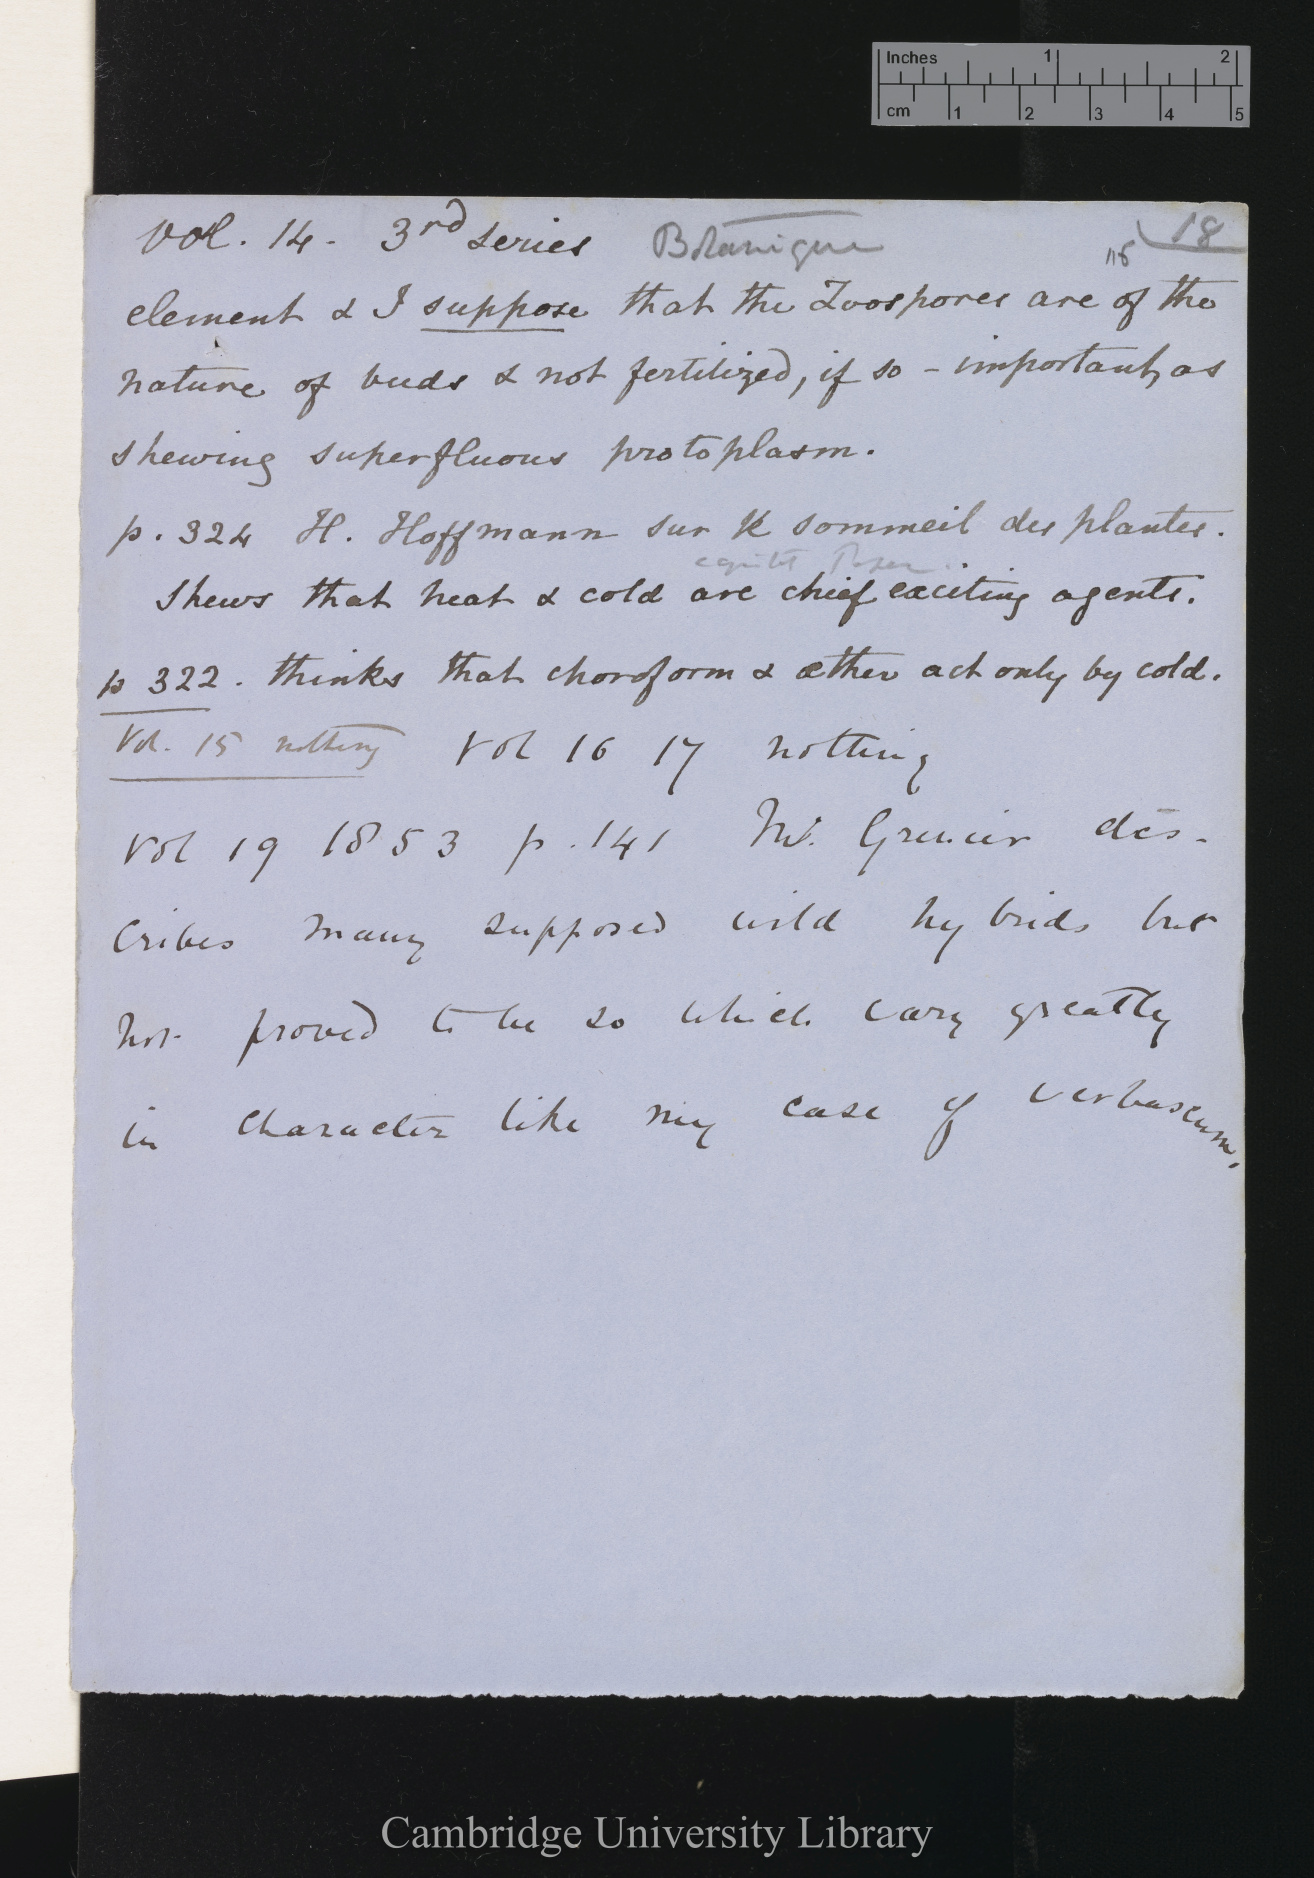 Inches 1 2
cm 1 2 3 4 5
18
Vol. 14. 3rd series Botanique 118
element & I suppose that the Zoospores are of the
nature of buds & not fertilized, if so - important, as
shewing superfluous protoplasm.
p. 324 H. Hoffmann sur le sommeil des plantes.
Shews that heat & cold are chief exciting agents.
p 322. thinks that choroform & æther act only by cold.
Vol. 15 nothing Vol 16 17 nothing
Vol 19 1853 p. 141 M. Grenier des-
cribes many supposed wild hybrids but
not proved to be so which vary greatly
in character like my case of Verbascum.
Cambridge University Library